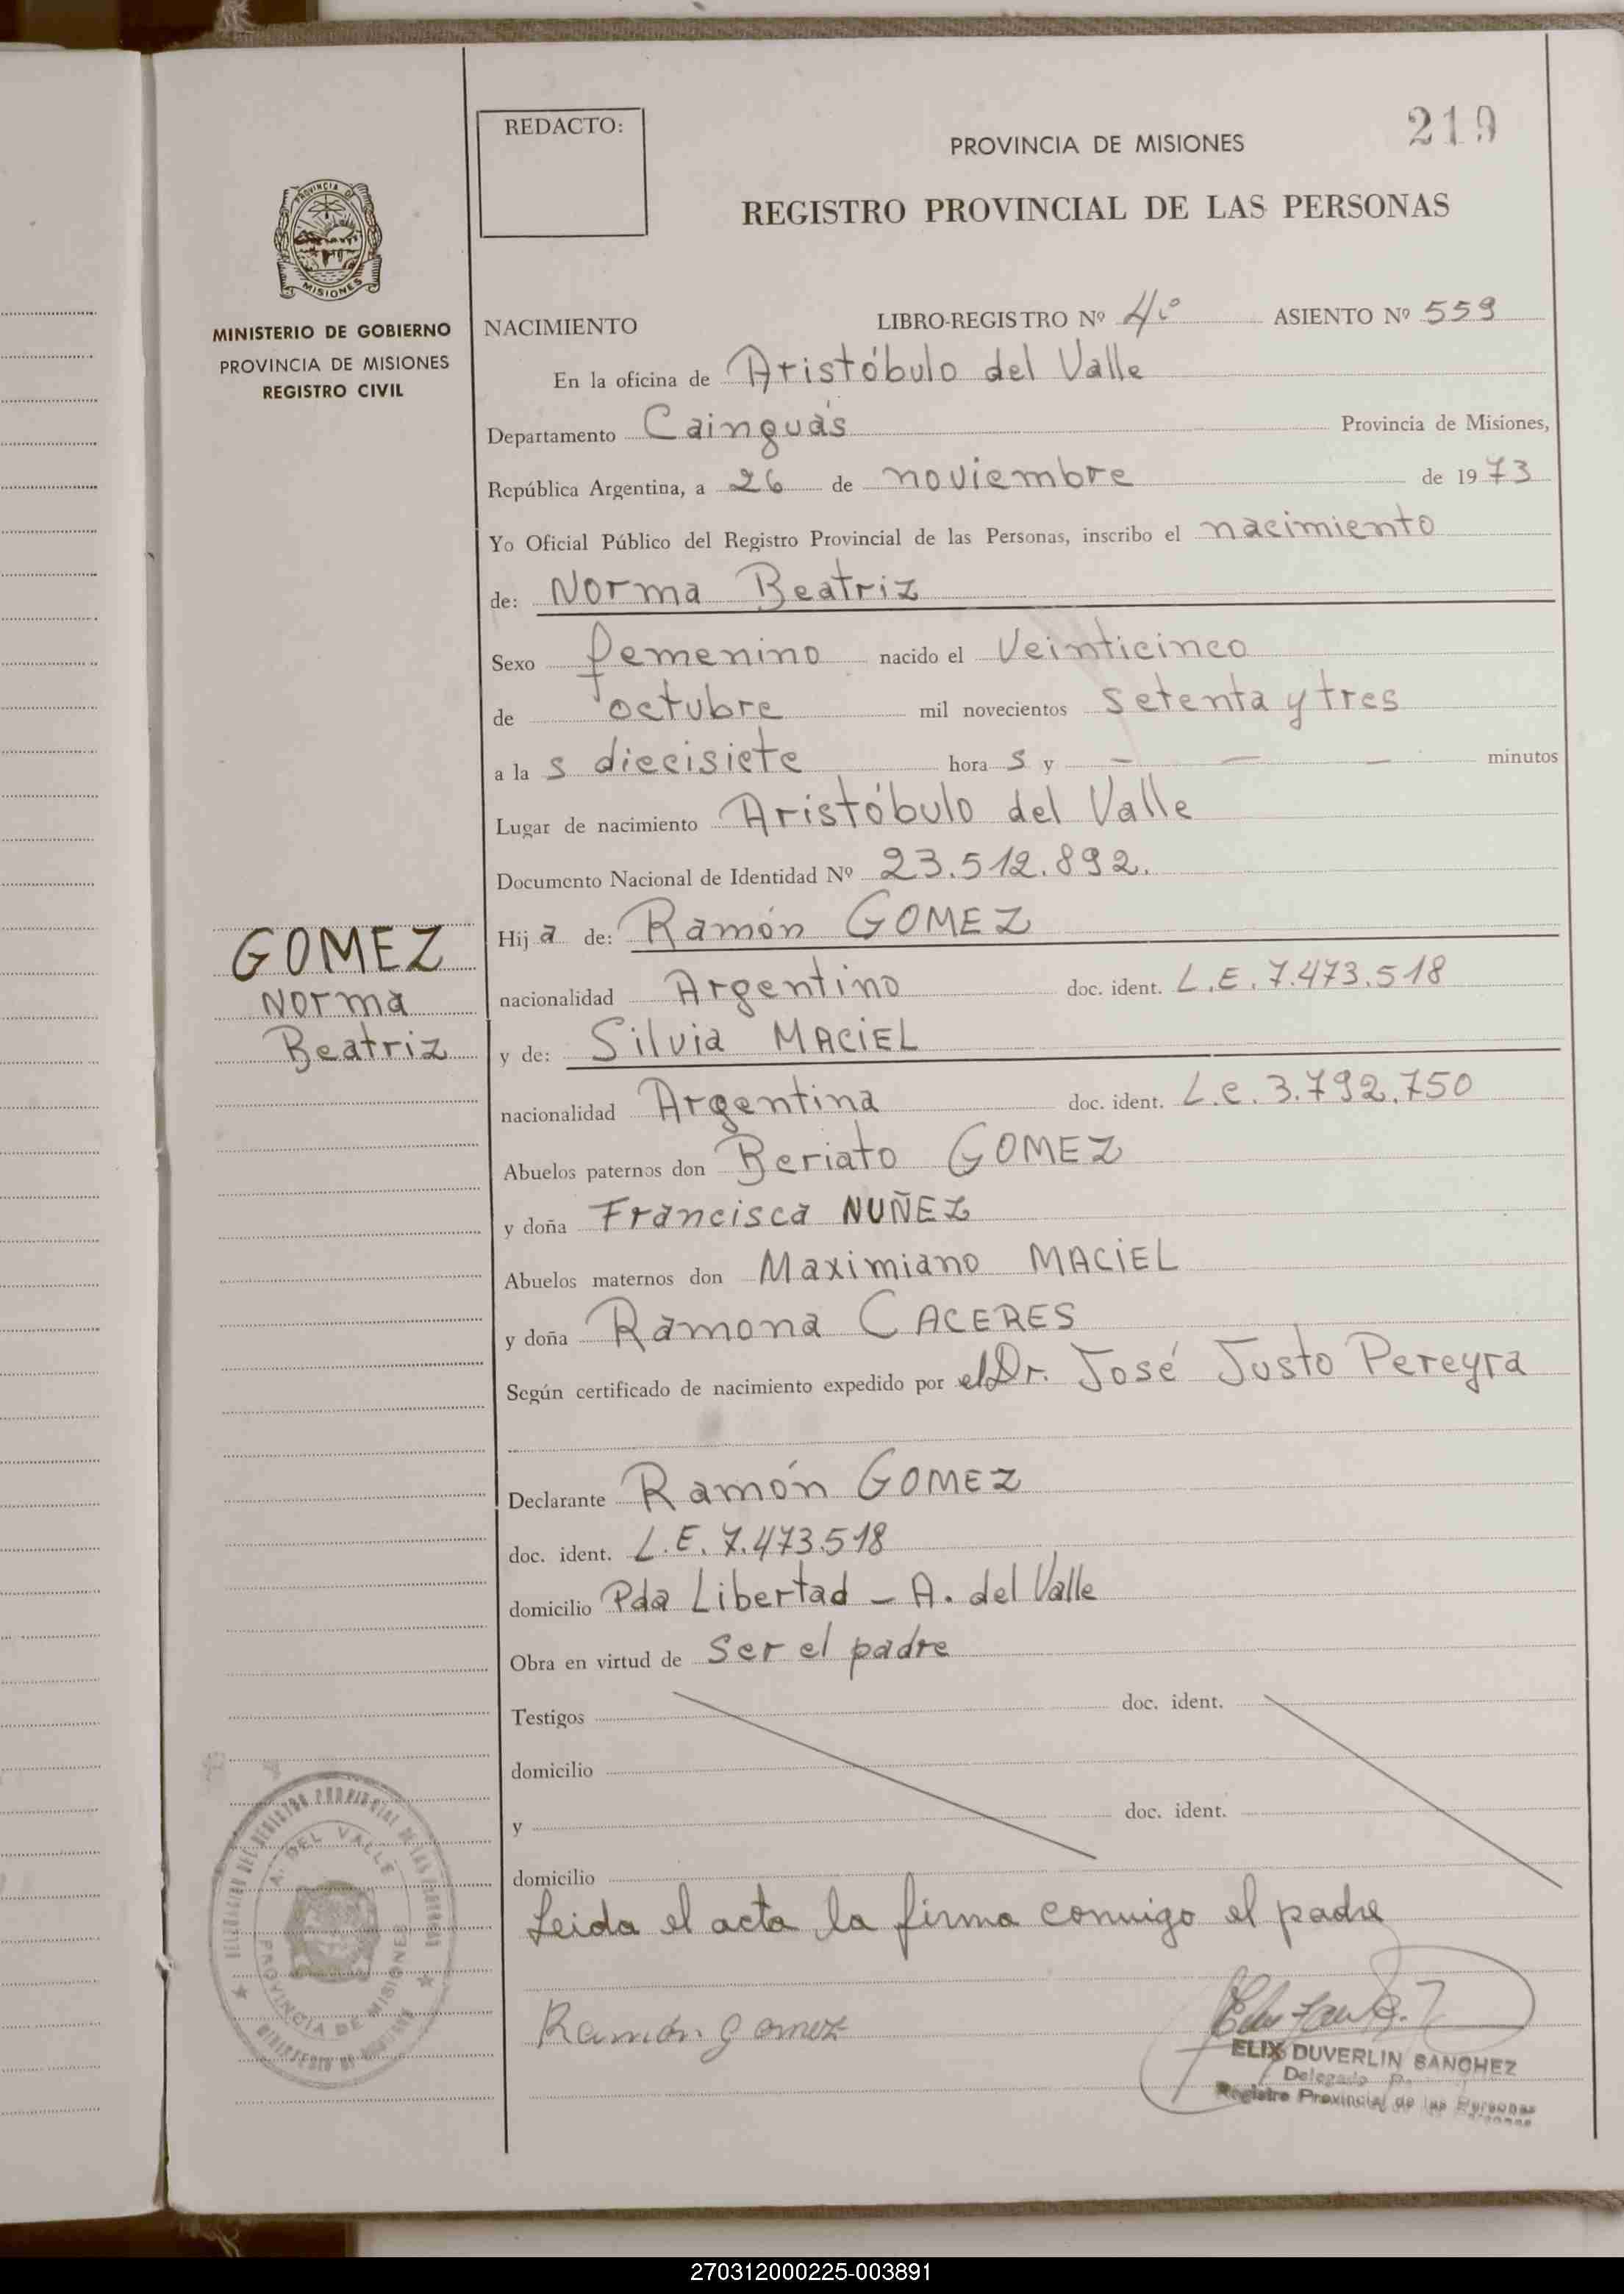 REDACTO:
219
PROVINCIA DE MISIONES
REGISTRO PROVINCIAL DE LAS PERSONAS
PROVINCIA DE
MISIONES
MINISTERIO DE GOBIERNO
PROVINCIA DE MISIONES
REGISTRO CIVIL
NACIMIENTO LIBRO-REGISTRO Nº 4º ASIENTO Nº 559
En la oficina de Aristóbulo del Valle
Departamento Cainguás Provincia de Misiones,
República Argentina, a 26 de noviembre de 1973
Yo Oficial Público del Registro Provincial de las Personas, inscribo el nacimiento
de: Norma Beatriz
Sexo femenino nacido el Veinticinco
de octubre mil novecientos setenta y tres
a la s diecisiete hora s y — — — minutos
Lugar de nacimiento Aristóbulo del Valle
Documento Nacional de Identidad Nº 23.512.892.
Hij a de: Ramón GOMEZ
nacionalidad Argentino doc. ident. L.E. 7.473.518
y de: Silvia MACIEL
nacionalidad Argentina doc. ident. L.C. 3.792.750
Abuelos paternos don Beriato GOMEZ
y doña Francisca NUÑEZ
Abuelos maternos don Maximiano MACIEL
y doña Ramona CACERES
Según certificado de nacimiento expedido por el Dr. José Justo Pereyra
Declarante Ramón GOMEZ
doc. ident. L.E. 7.473.518
domicilio Pda Libertad – A. del Valle
Obra en virtud de ser el padre
Testigos doc. ident.
domicilio
y doc. ident.
domicilio
Leida el acta la firma conmigo el padre
Ramón gomez
ELIX DUVERLIN SANCHEZ
Delegado
Registro Provincial de las Personas
GOMEZ
Norma
Beatriz
REGISTRO PROVINCIAL DE LAS PERSONAS
A. DEL VALLE
PROVINCIA DE MISIONES
MINISTERIO DE GOBIERNO
270312000225-003891